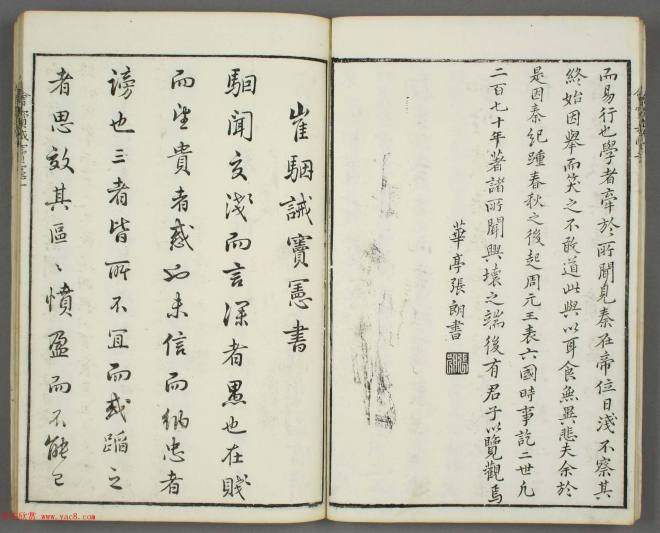 而易行也學者牽於所聞見秦在帝位日淺不察其
終始因舉而笑之不敢道此與以耳食無異悲夫余於
是因秦紀踵春秋之後起周元王表六國時事訖二世凡
二百七十年著諸所聞興壞之端後有君子以覽觀焉
華亭張朗書
崔駰誡竇憲書
駰聞交淺而言深者愚也在賤
而望貴者惑也未信而納忠者
謗也三者皆所不宜而或蹈之
者思效其區〻憤盈而不能已
www.yac8.com